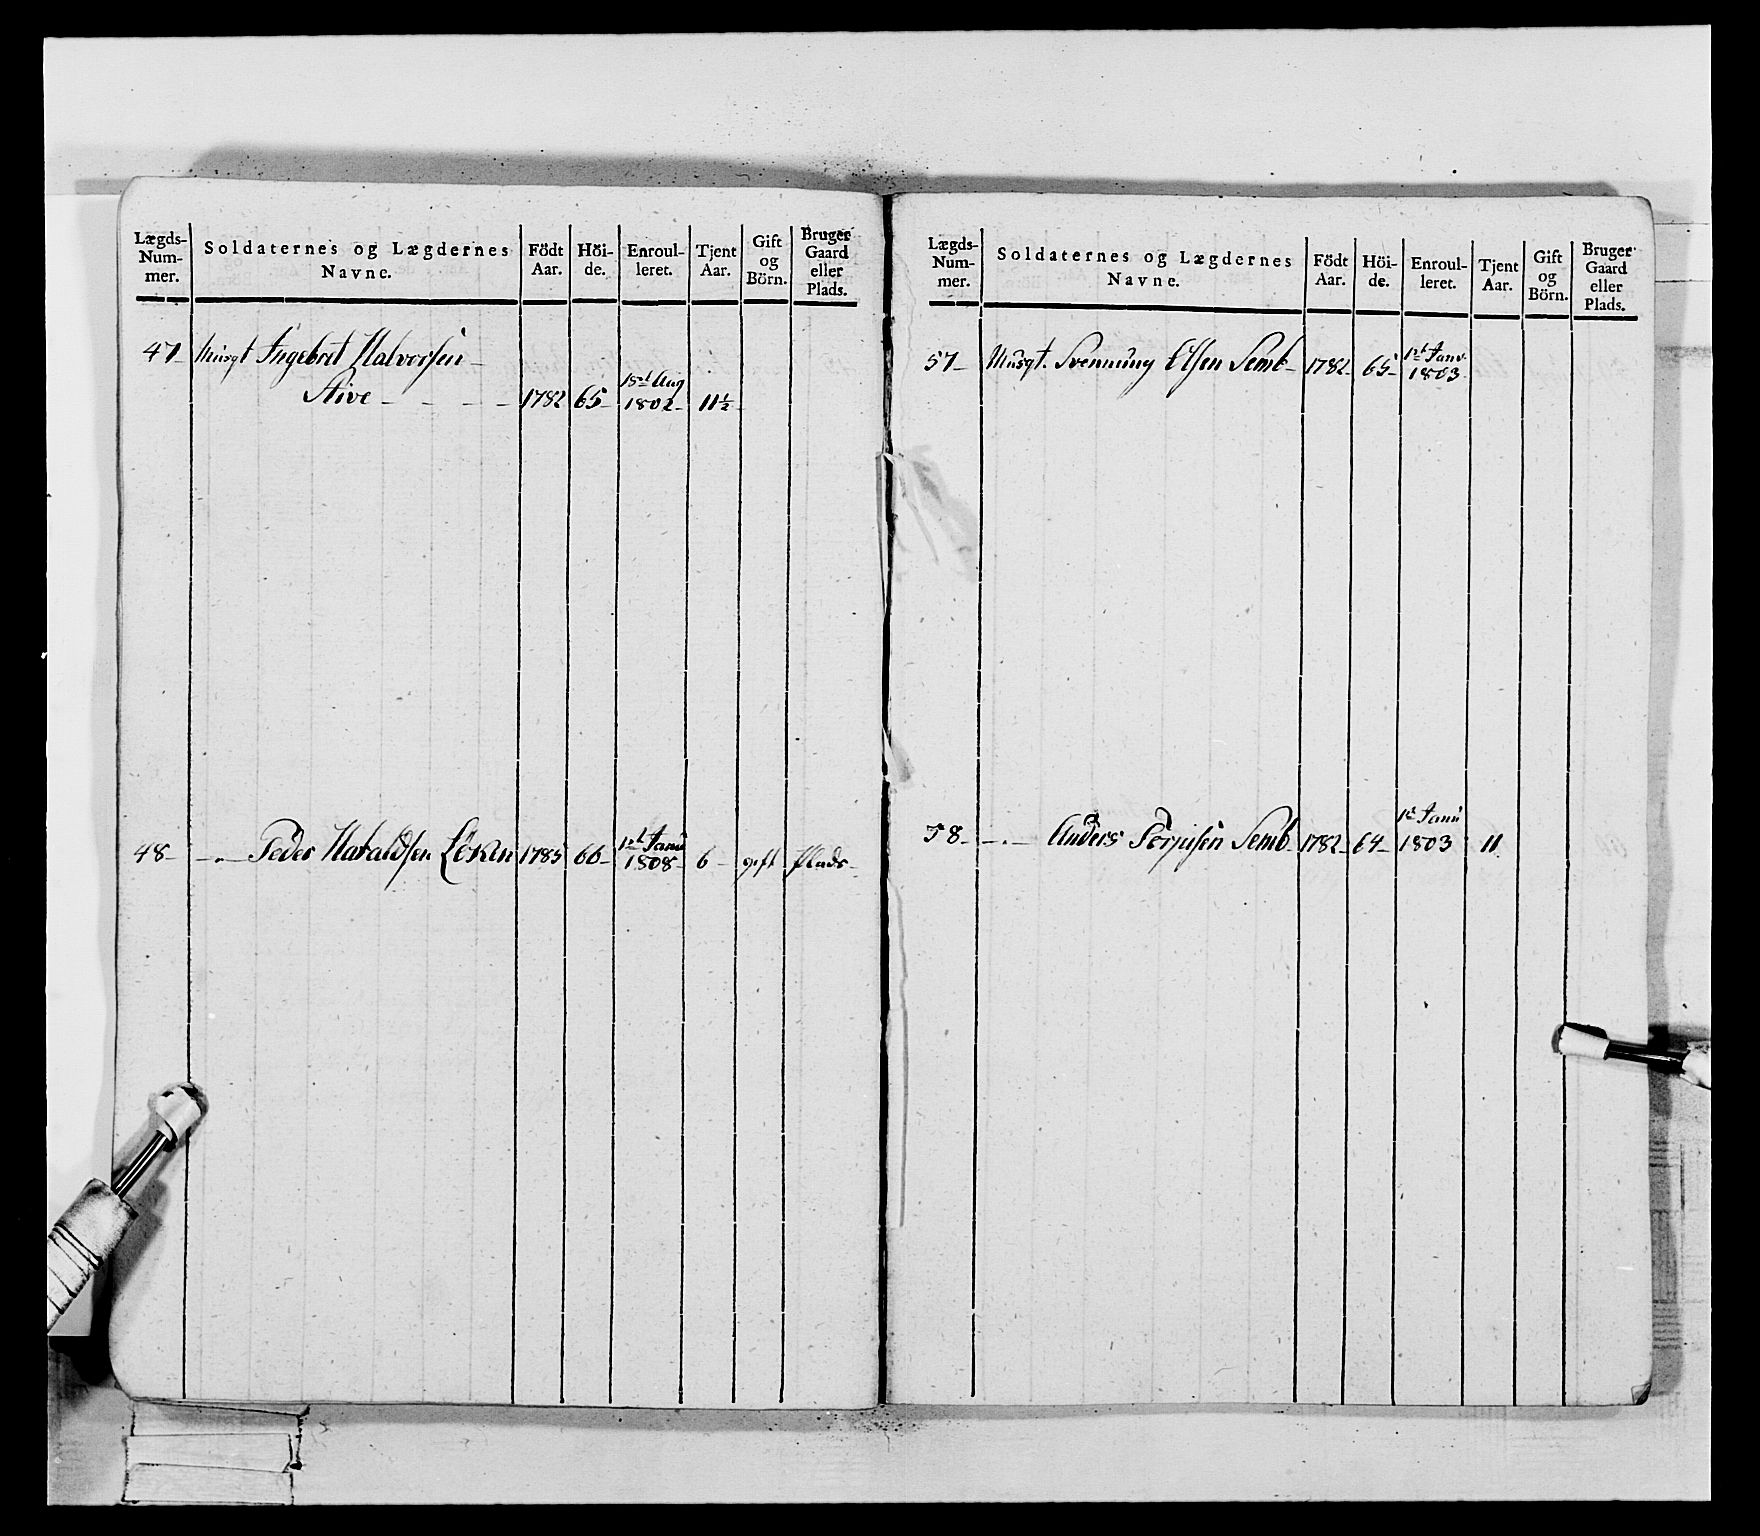 Lægds-
Num-
mer.
Soldaternes og Lægdernes
Navne.
Födt
Aar.
Höi-
de.
Enroul-
leret.
Tjent
Aar.
Gift
og
Börn.
Bruger
Gaard
eller
Plads.
47- Musqt Ingebret Halvorsen-
Aive - - - - 1782 65- 18de Aug 1802- 11½
48- -"- Peder Haraldsen Löken 1785 66- 1st Janu 1808- 6- gift Plads-
Lægds-
Num-
mer.
Soldaternes og Lægdernes
Navne.
Födt
Aar.
Höi-
de.
Enroul-
leret.
Tjent
Aar.
Gift
og
Börn.
Bruger
Gaard
eller
Plads.
57- Musqt. Svennung Elsen Semb- 1782- 65- 1st Janv. 1803.
58- -"- Anders Torjusen Semb 1782- 64- 1st Janu 1803 11